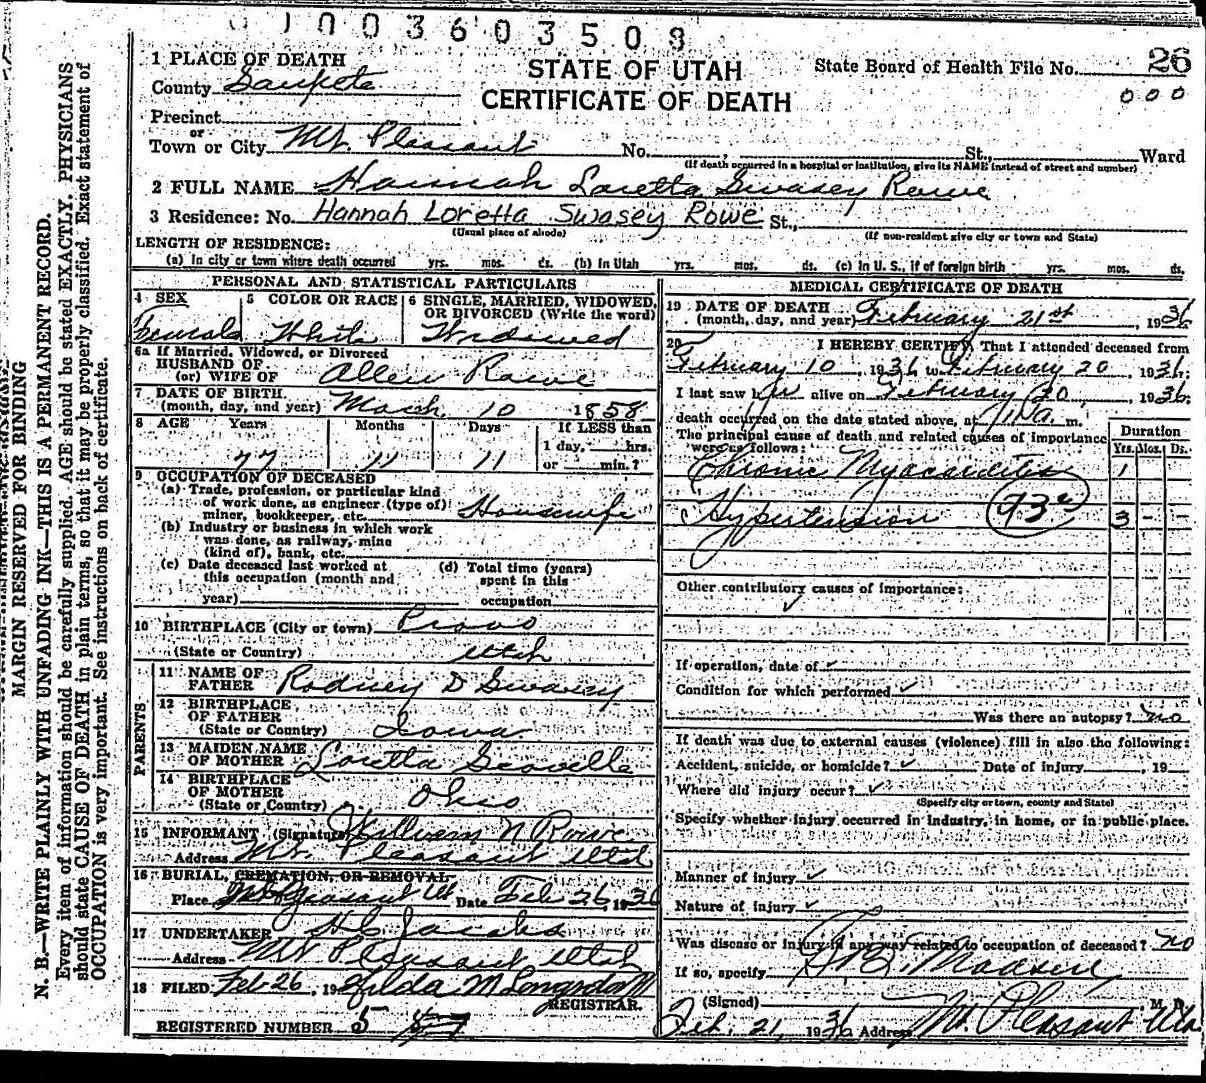 0 1 0 0 3 6 0 3 5 0 8
1 PLACE OF DEATH
STATE OF UTAH
CERTIFICATE OF DEATH
State Board of Health File No. 26
0 0 0
County Sanpete
Precinct
or
Town or City Mt. Pleasant No. St., Ward
(If death occurred in a hospital or institution, give its NAME instead of street and number)
2 FULL NAME Hannah Loretta Swasey Rowe
3 Residence: No. Hannah Loretta Swasey Rowe St.,
(Usual place of abode) (If non-resident give city or town and State)
LENGTH OF RESIDENCE:
(a) In city or town where death occurred yrs. mos. ds. (b) In Utah yrs. mos. ds. (c) In U. S., if of foreign birth yrs. mos. ds.
PERSONAL AND STATISTICAL PARTICULARS
4 SEX 5 COLOR OR RACE 6 SINGLE, MARRIED, WIDOWED,
OR DIVORCED (Write the word)
Female White Widowed
6a If Married, Widowed, or Divorced
HUSBAND OF
(or) WIFE OF Allen Rowe
7 DATE OF BIRTH
(month, day, and year) March 10 1858
8 AGE Years Months Days If LESS than
1 day, hrs.
77 11 11 or min.?
9 OCCUPATION OF DECEASED
(a) Trade, profession, or particular kind
of work done, as engineer (type of)
miner, bookkeeper, etc. Housewife
(b) Industry or business in which work
was done, as railway, mine
(kind of), bank, etc.
(c) Date deceased last worked at (d) Total time (years)
this occupation (month and spent in this
year) occupation
10 BIRTHPLACE (City or town) Provo
(State or Country) Utah
PARENTS
11 NAME OF
FATHER Rodney D Swasey
12 BIRTHPLACE
OF FATHER
(State or Country) Iowa
13 MAIDEN NAME
OF MOTHER Loretta Scoville
14 BIRTHPLACE
OF MOTHER
(State or Country) Ohio
15 INFORMANT (Signature) William N Rowe
Address Mt. Pleasant Utah
16 BURIAL, CREMATION, OR REMOVAL
Place Mt Pleasant Ut Date Feb 26, 1936
17 UNDERTAKER H C Jacobs
Address Mt Pleasant Utah
18 FILED Feb 26, 19 Hilda M Longsdorf
REGISTRAR.
REGISTERED NUMBER 5
MEDICAL CERTIFICATE OF DEATH
19 DATE OF DEATH
(month, day, and year) February 21st, 1936
20 I HEREBY CERTIFY That I attended deceased from
February 10, 1936 to February 20, 1936;
I last saw her alive on February 20, 1936;
death occurred on the date stated above, at m.
The principal cause of death and related causes of importance
were as follows:
Duration
Yrs. Mos. Ds.
Chronic Myocarditis 1
Hypertension 93c 3 - -
Other contributory causes of importance:
If operation, date of
Condition for which performed
Was there an autopsy? no
If death was due to external causes (violence) fill in also the following:
Accident, suicide, or homicide? Date of injury , 19
Where did injury occur?
(Specify city or town, county and State)
Specify whether injury occurred in industry, in home, or in public place.
Manner of injury
Nature of injury
Was disease or injury in any way related to occupation of deceased? no
If so, specify
(Signed) Madsen M. D.
Feb. 21, 1936 Address Mt. Pleasant Uta
MARGIN RESERVED FOR BINDING
N. B.—WRITE PLAINLY WITH UNFADING INK—THIS IS A PERMANENT RECORD.
Every item of information should be carefully supplied. AGE should be stated EXACTLY. PHYSICIANS
should state CAUSE OF DEATH in plain terms, so that it may be properly classified. Exact statement of
OCCUPATION is very important. See instructions on back of certificate.